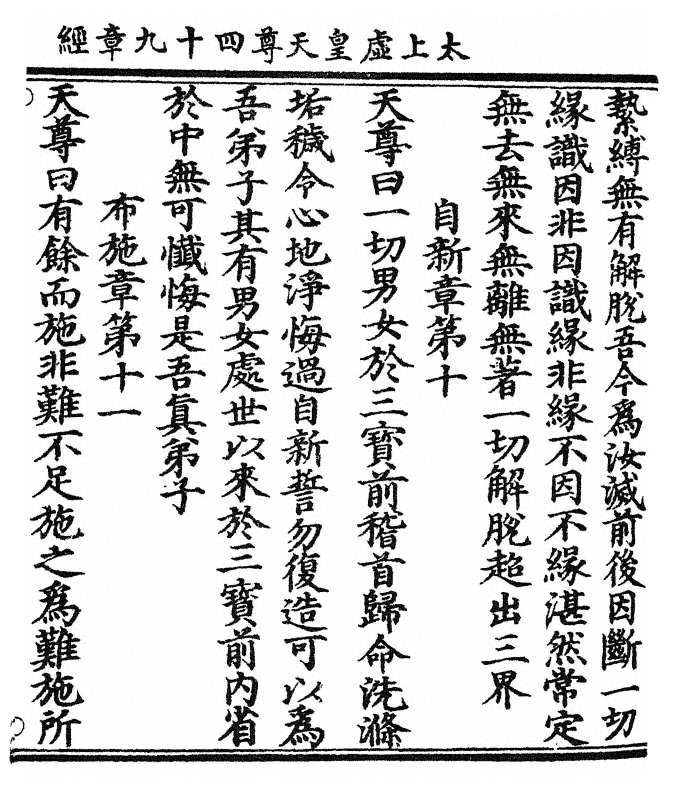 太上虛皇天尊四十九章經
縶縛無有解脫吾今爲汝滅前後因斷一切
緣識因非因識緣非緣不因不緣湛然常定
無去無來無離無著一切解脫超出三界
自新章第十
天尊曰一切男女於三寶前稽首歸命洗滌
垢穢令心地淨悔過自新誓勿復造可以爲
吾弟子其有男女處世以來於三寶前內省
於中無可懺悔是吾眞弟子
布施章第十一
天尊曰有餘而施非難不足施之爲難施所